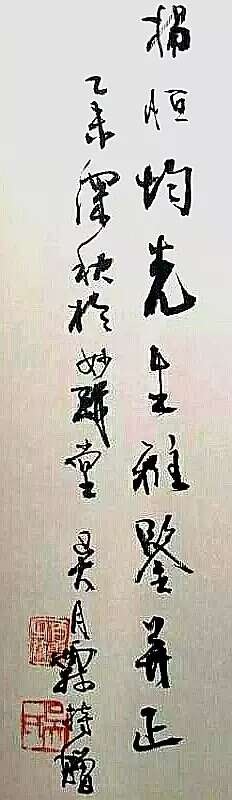 楊恒均先生雅鑒并正
乙未深秋於妙堂 吴月霖持贈